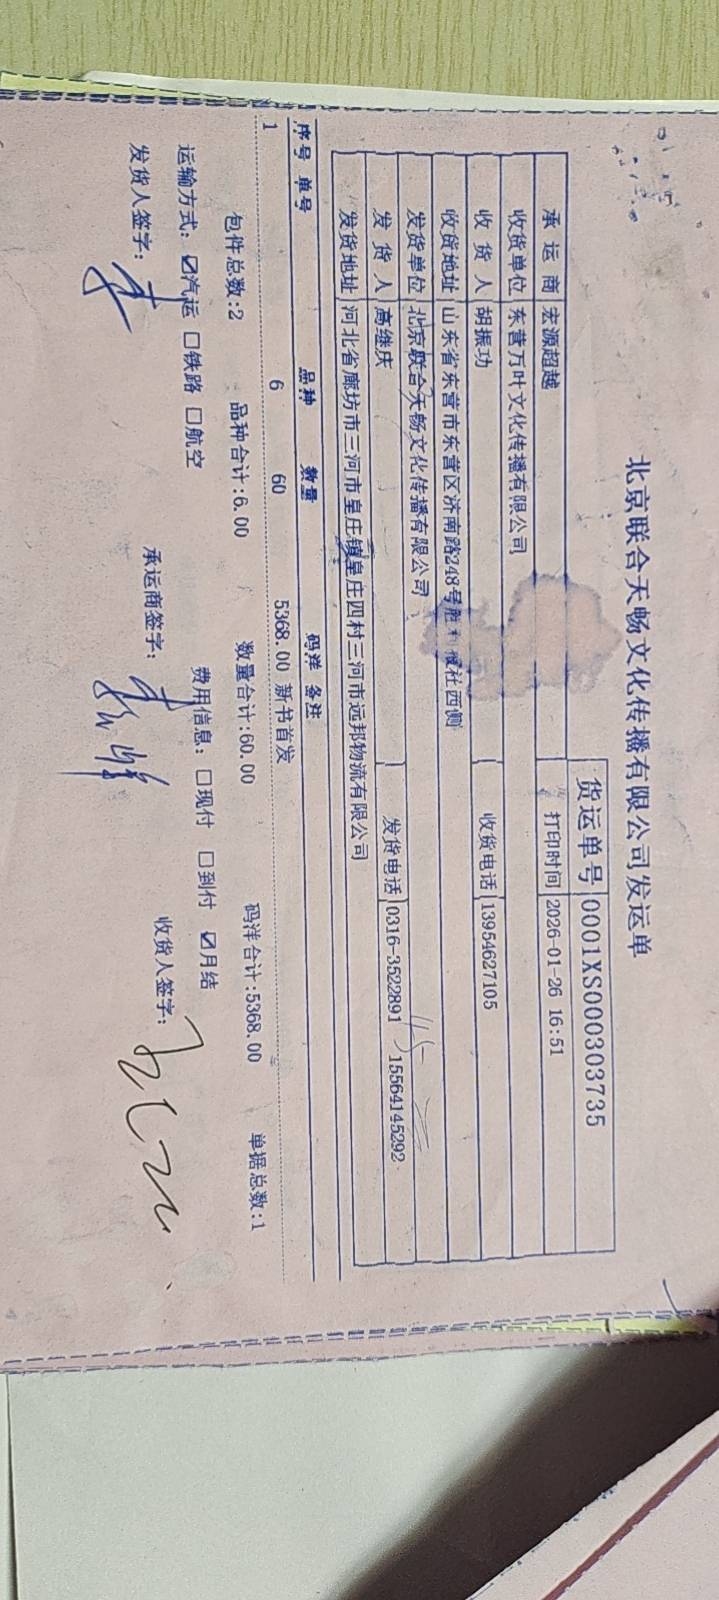 北京联合天畅文化传播有限公司发运单
货运单号 0001XS000303735
承运商 宏源超越 打印时间 2026-01-26 16:51
收货单位 东营万叶文化传播有限公司
收货人 胡振功 收货电话 13954627105
收货地址 山东省东营市东营区济南路248号胜利 社西侧
发货单位 北京联合天畅文化传播有限公司
发货人 高继庆 发货电话 0316-3522891 15564145292
发货地址 河北省廊坊市三河市皇庄镇皇庄四村三河市远邦物流有限公司
序号 单号 品种 数量 码洋 备注
1 6 60 5368.00 新书首发
包件总数:2 品种合计:6.00 数量合计:60.00 码洋合计:5368.00 单据总数:1
运输方式: ☑汽运 □铁路 □航空 费用信息: □现付 □到付 ☑月结
发货人签字: 承运商签字: 收货人签字: